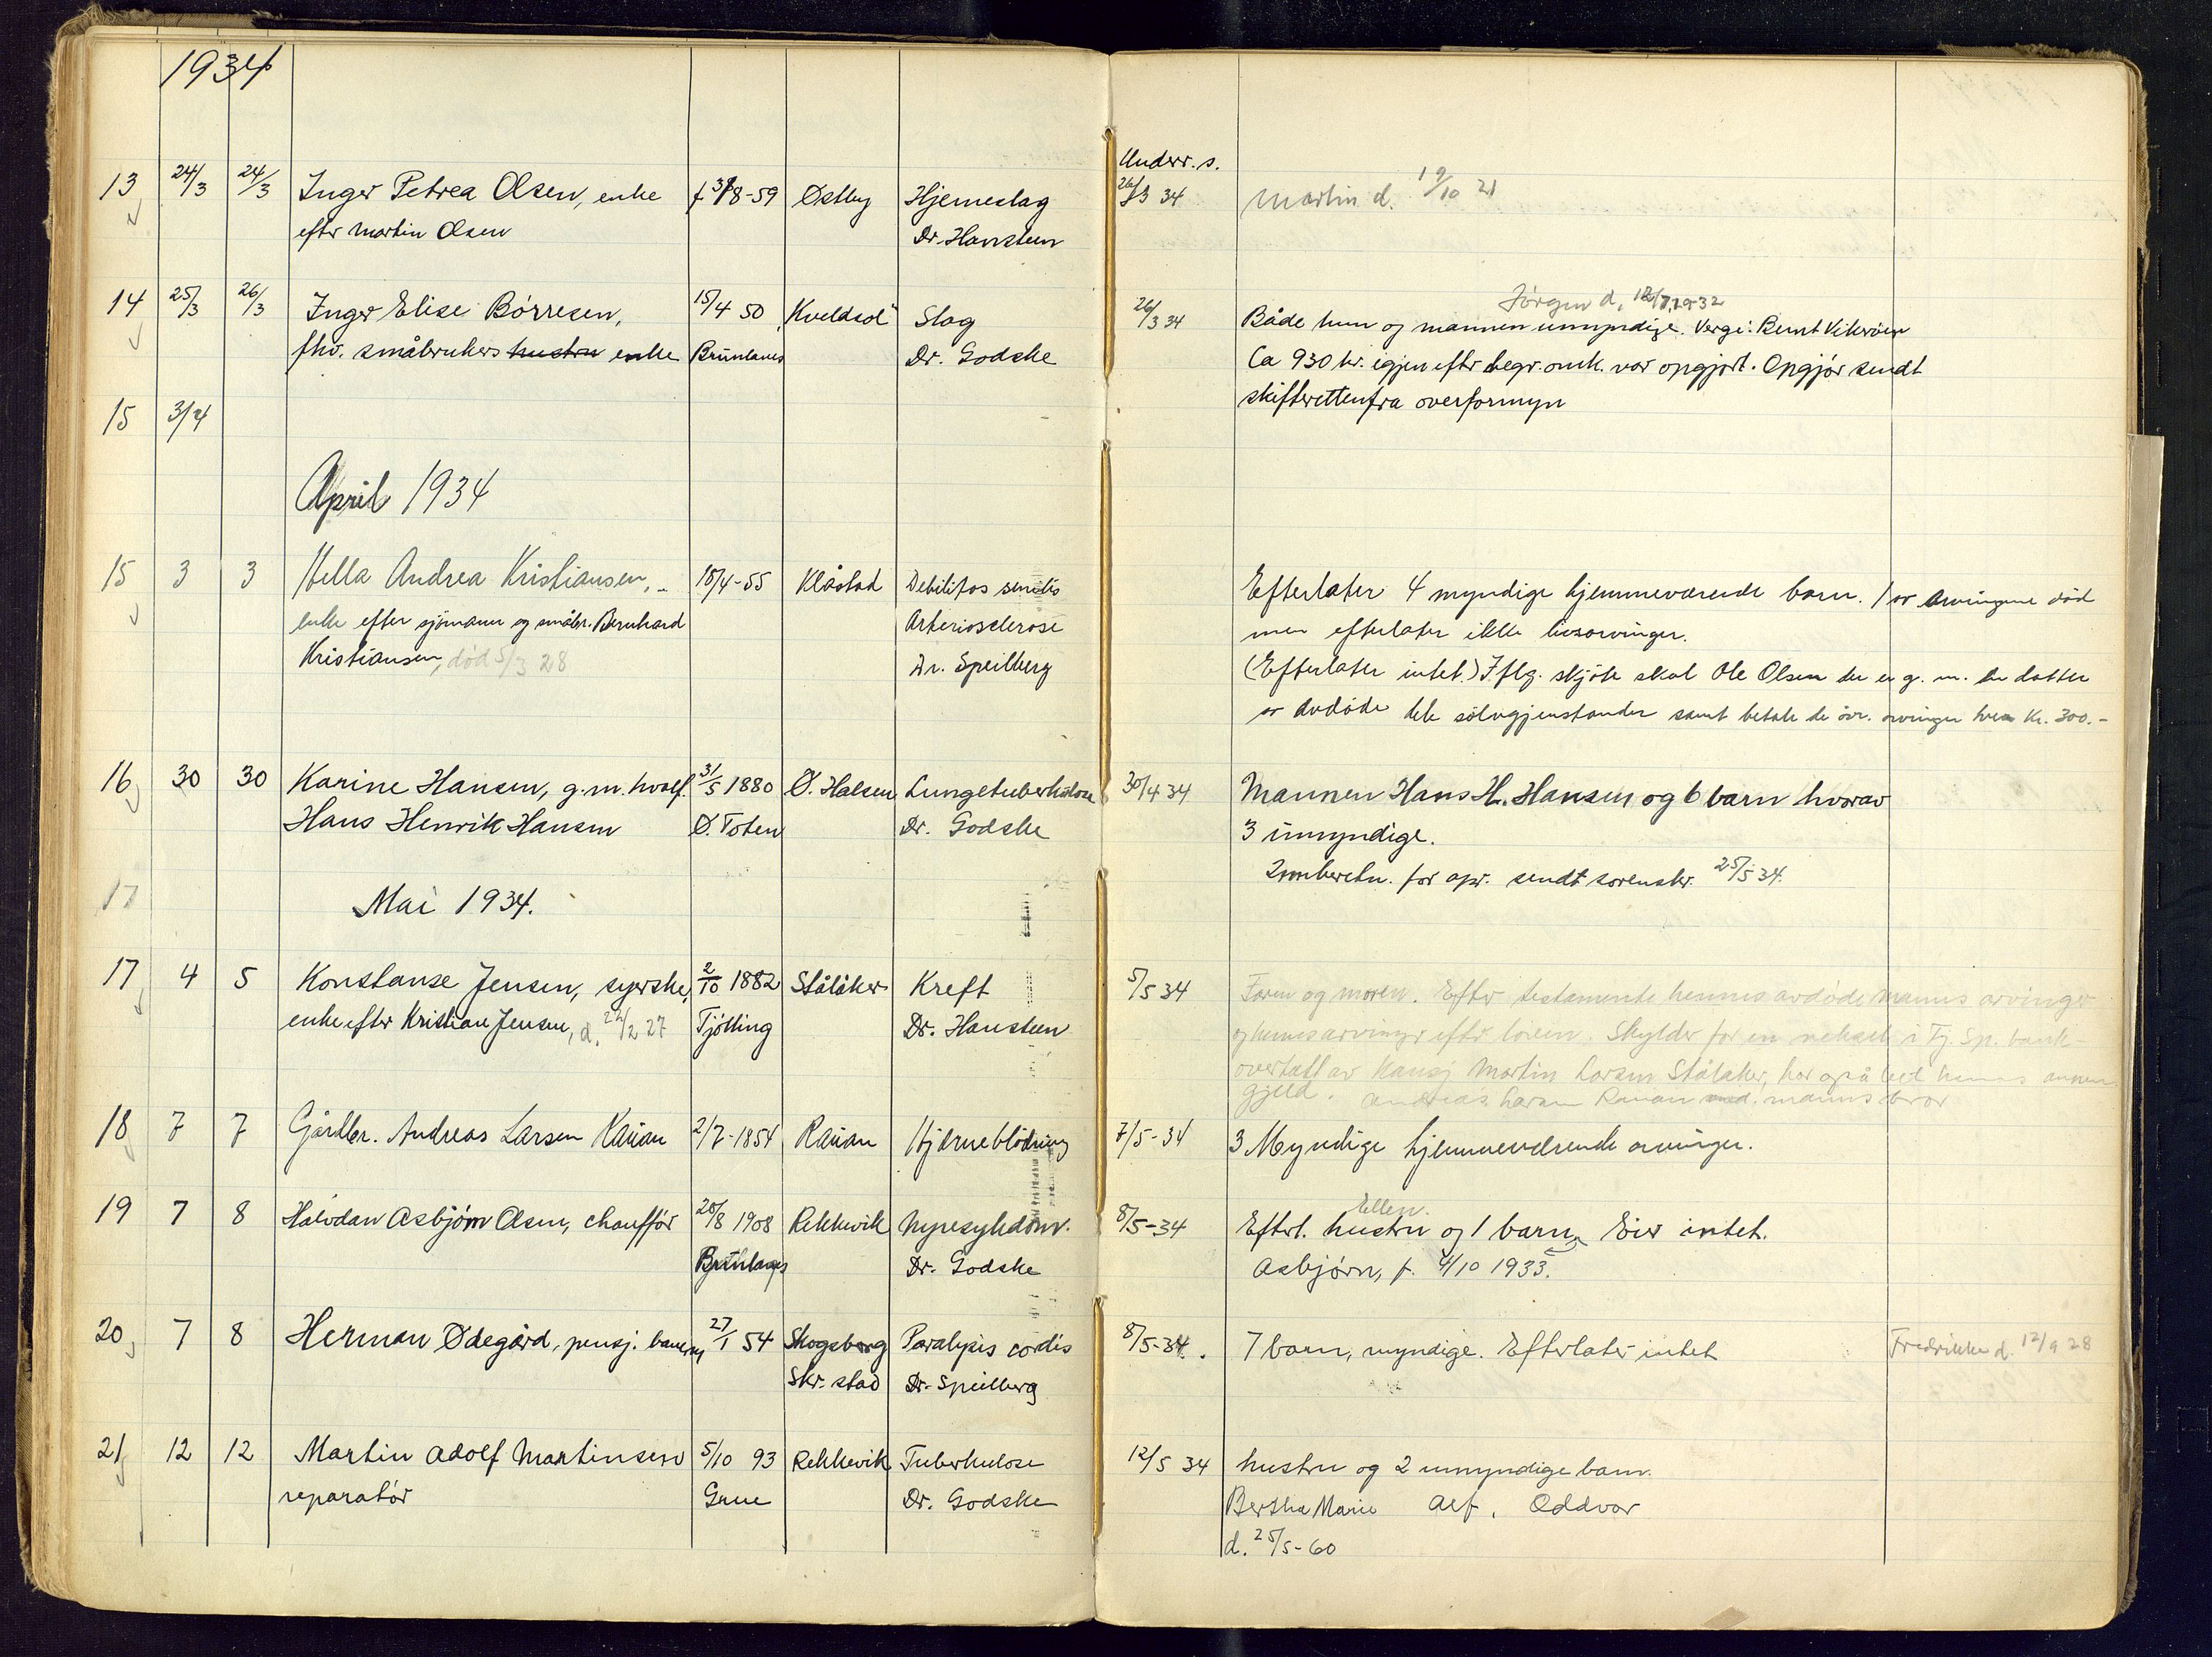 1934
Underr. s.
13 24/3 24/3 Inger Petrea Olsen, enke f 31/8-59 Østby Hjerneslag 26/3 34 Martin d. 19/10 21
efter Martin Olsen Dr. Hansteen
Jörgen d. 12/7 1932
14 25/3 26/3 Inger Elise Börresen, 15/4 50 Kveldsö Slag 26/3 34 Både hun og mannen umyndige. Verge: Bernt Vikeröien
fhv. småbrukers hustru enke Brunlanes Dr. Godske Ca 930 kr. igjen eftr begr. omk. var opgjort. Opgjör sendt
skifteretten fra overformyn
15 3/4
April 1934
15 3 3 Hella Andrea Kristiansen, 18/4-55 Klåstad Debilitas senilis Efterlater 4 myndige hjemmeværende barn. 1 av arvingene död
enke efter sjömann og småbr. Bernhard Arteriosclerose men efterlater ikke livsarvinger.
Kristiansen, död 5/3 28 Dr. Speilberg (Efterlater intet.) Iflg. skjöte skal Ole Olsen der er g. m. en datter
av avdöde dele sölvgjenstander samt betale de övr. arvinger hver Kr. 300.-
16 30 30 Karine Hansen, g. m. hvalf. 31/5 1880 Ø. Halsen Lungetuberkulose 30/4 34 Mannen Hans H. Hansen og 6 barn hvorav
Hans Henrik Hansen Ø. Toten Dr. Godske 3 umyndige.
Innberetn. for apr. sendt sorenskr. 25/5 34.
17 Mai 1934.
17 4 5 Konstanse Jensen, syerske, 2/10 1882 Ståláker Kreft 5/5 34 Faren og moren. Efter testamente hennes avdöde manns arvinger
enke efter Kristian Jensen, d. 22/2 27 Tjölling Dr. Hansteen og hennes arvinger eftr loven. Skylder for en veksel i Tj. Sp. bank
overtatt av Martin Larsen Stålaker, har også
gjeld. Andreas Larsen Rauan manns bror
18 7 7 Gårdbr. Andreas Larsen Rauan 2/7-1854 Rauan Hjerneblödning 7/5-34 3 Myndige hjemmeværende arvinger.
Ellen.
19 7 8 Halvdan Asbjörn Olsen, chaufför 28/8 1908 Rekkevik Nyresykdom. 8/5-34 Efterl. hustru og 1 barn, Eier intet.
Brunlanes Dr. Godske Asbjörn, f. 4/10 1933.
20 7 8 Herman Ødegård, pensj. 27/1 54 Skogsborg Paralysis cordis 8/5-34. 7 barn, myndige. Efterlater intet Fredrikke d. 12/9 28
Skr. stad Dr. Speilberg
21 12 12 Martin Adolf Martinsen 5/10 93 Rekkevik Tuberkulose 12/5 34 hustru og 2 umyndige barn.
reparatör Grue Dr. Godske Bertha Marie Alf, Oddvar
d. 25/5-60